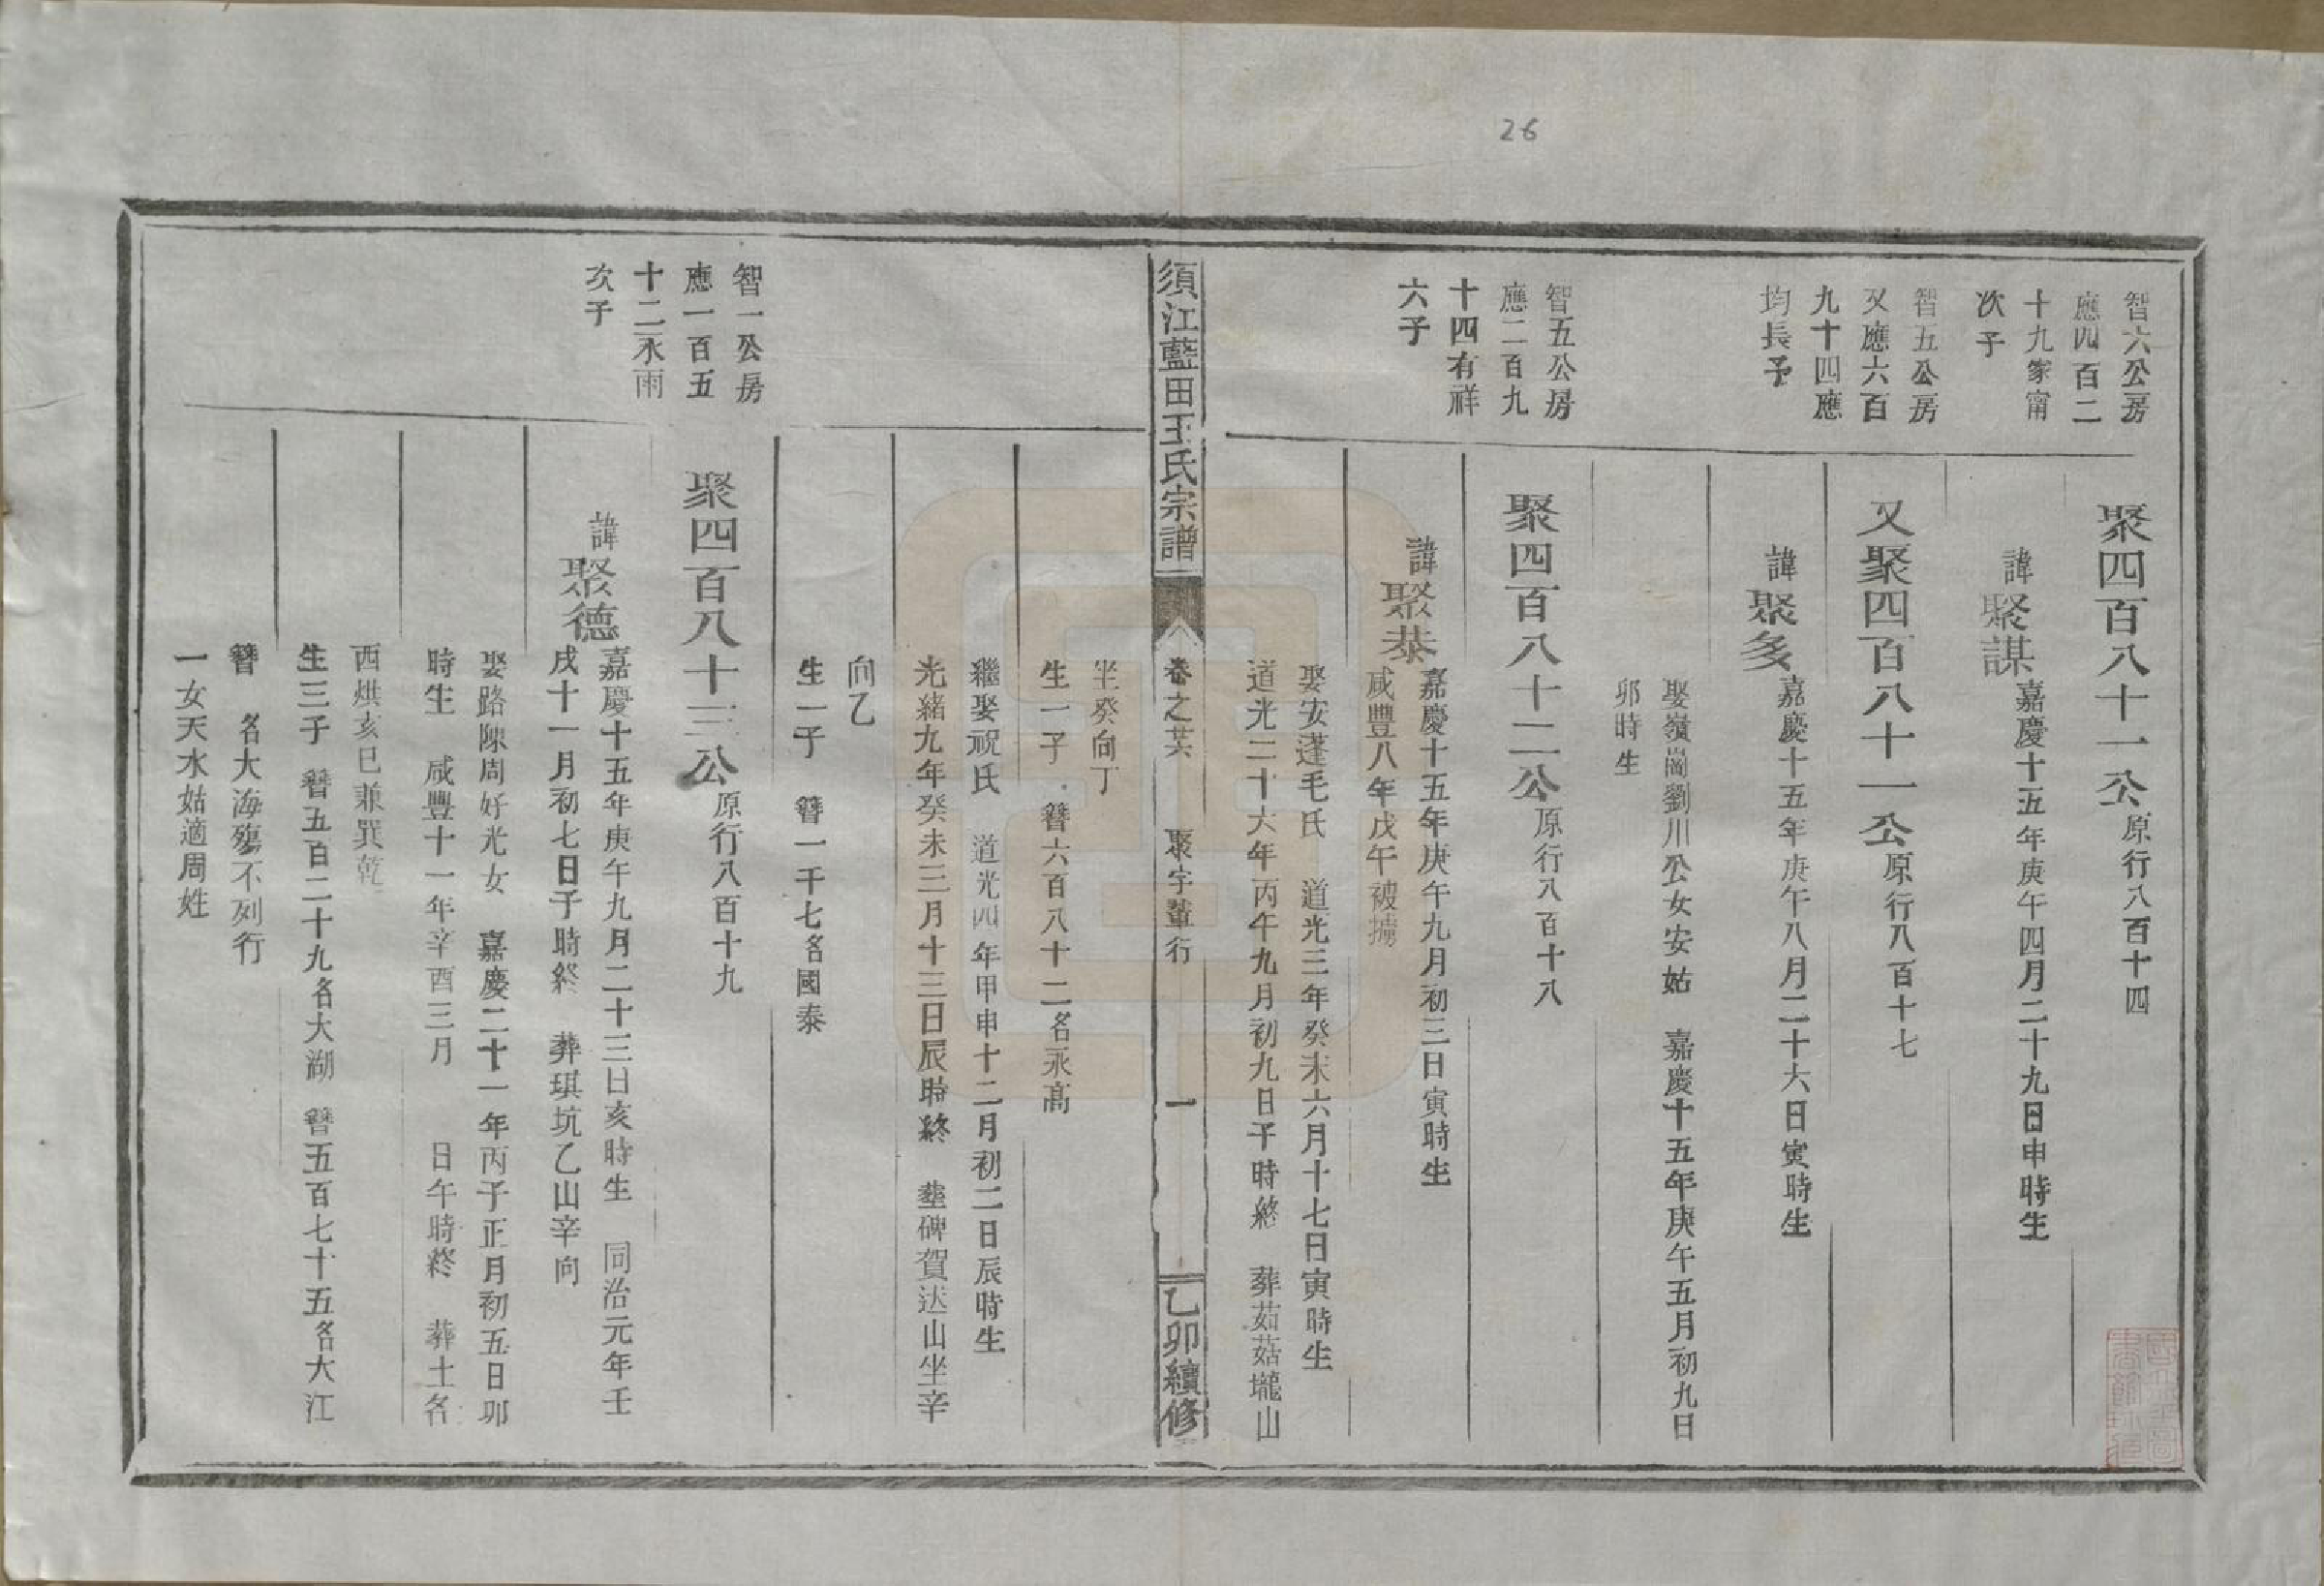 26
智六公房
應四百二
十九家甯
次子
聚四百八十一公原行八百十四
諱聚謀嘉慶十五年庚午四月二十九日申時生
智五公房
又應六百
九十四應
均長子
又聚四百八十一公原行八百十七
諱聚多嘉慶十五年庚午八月二十六日寅時生
娶嶺崗劉川公女安姑　嘉慶十五年庚午五月初九日
卯時生
智五公房
應二百九
十四有祥
六子
聚四百八十二公原行八百十八
諱聚恭嘉慶十五年庚午九月初三日寅時生
咸豐八年戊午被擄
娶安蓬毛氏　道光三年癸未六月十七日寅時生
道光二十六年丙午九月初九日子時終　葬茹菇壠山
須江藍田王氏宗譜
卷之
聚字輩行
一
乙卯續修
坐癸向丁
生一子　簪六百八十二名永高
繼娶祝氏　道光四年甲申十二月初二日辰時生
光緒九年癸未三月十三日辰時終　塟碑賀达山坐辛
向乙
生一子　簪一千七名國泰
智一公房
應一百五
十二永雨
次子
聚四百八十三公原行八百十九
諱聚德嘉慶十五年庚午九月二十三日亥時生　同治元年壬
戌十一月初七日子時終　葬琪坑乙山辛向
娶路陳周好光女　嘉慶二十一年丙子正月初五日卯
時生　咸豐十一年辛酉三月　日午時終　葬土名
西烘亥巳兼巽乾
生三子　簪五百二十九名大湖　簪五百七十五名大江
簪　名大海殤不列行
一女天水姑適周姓